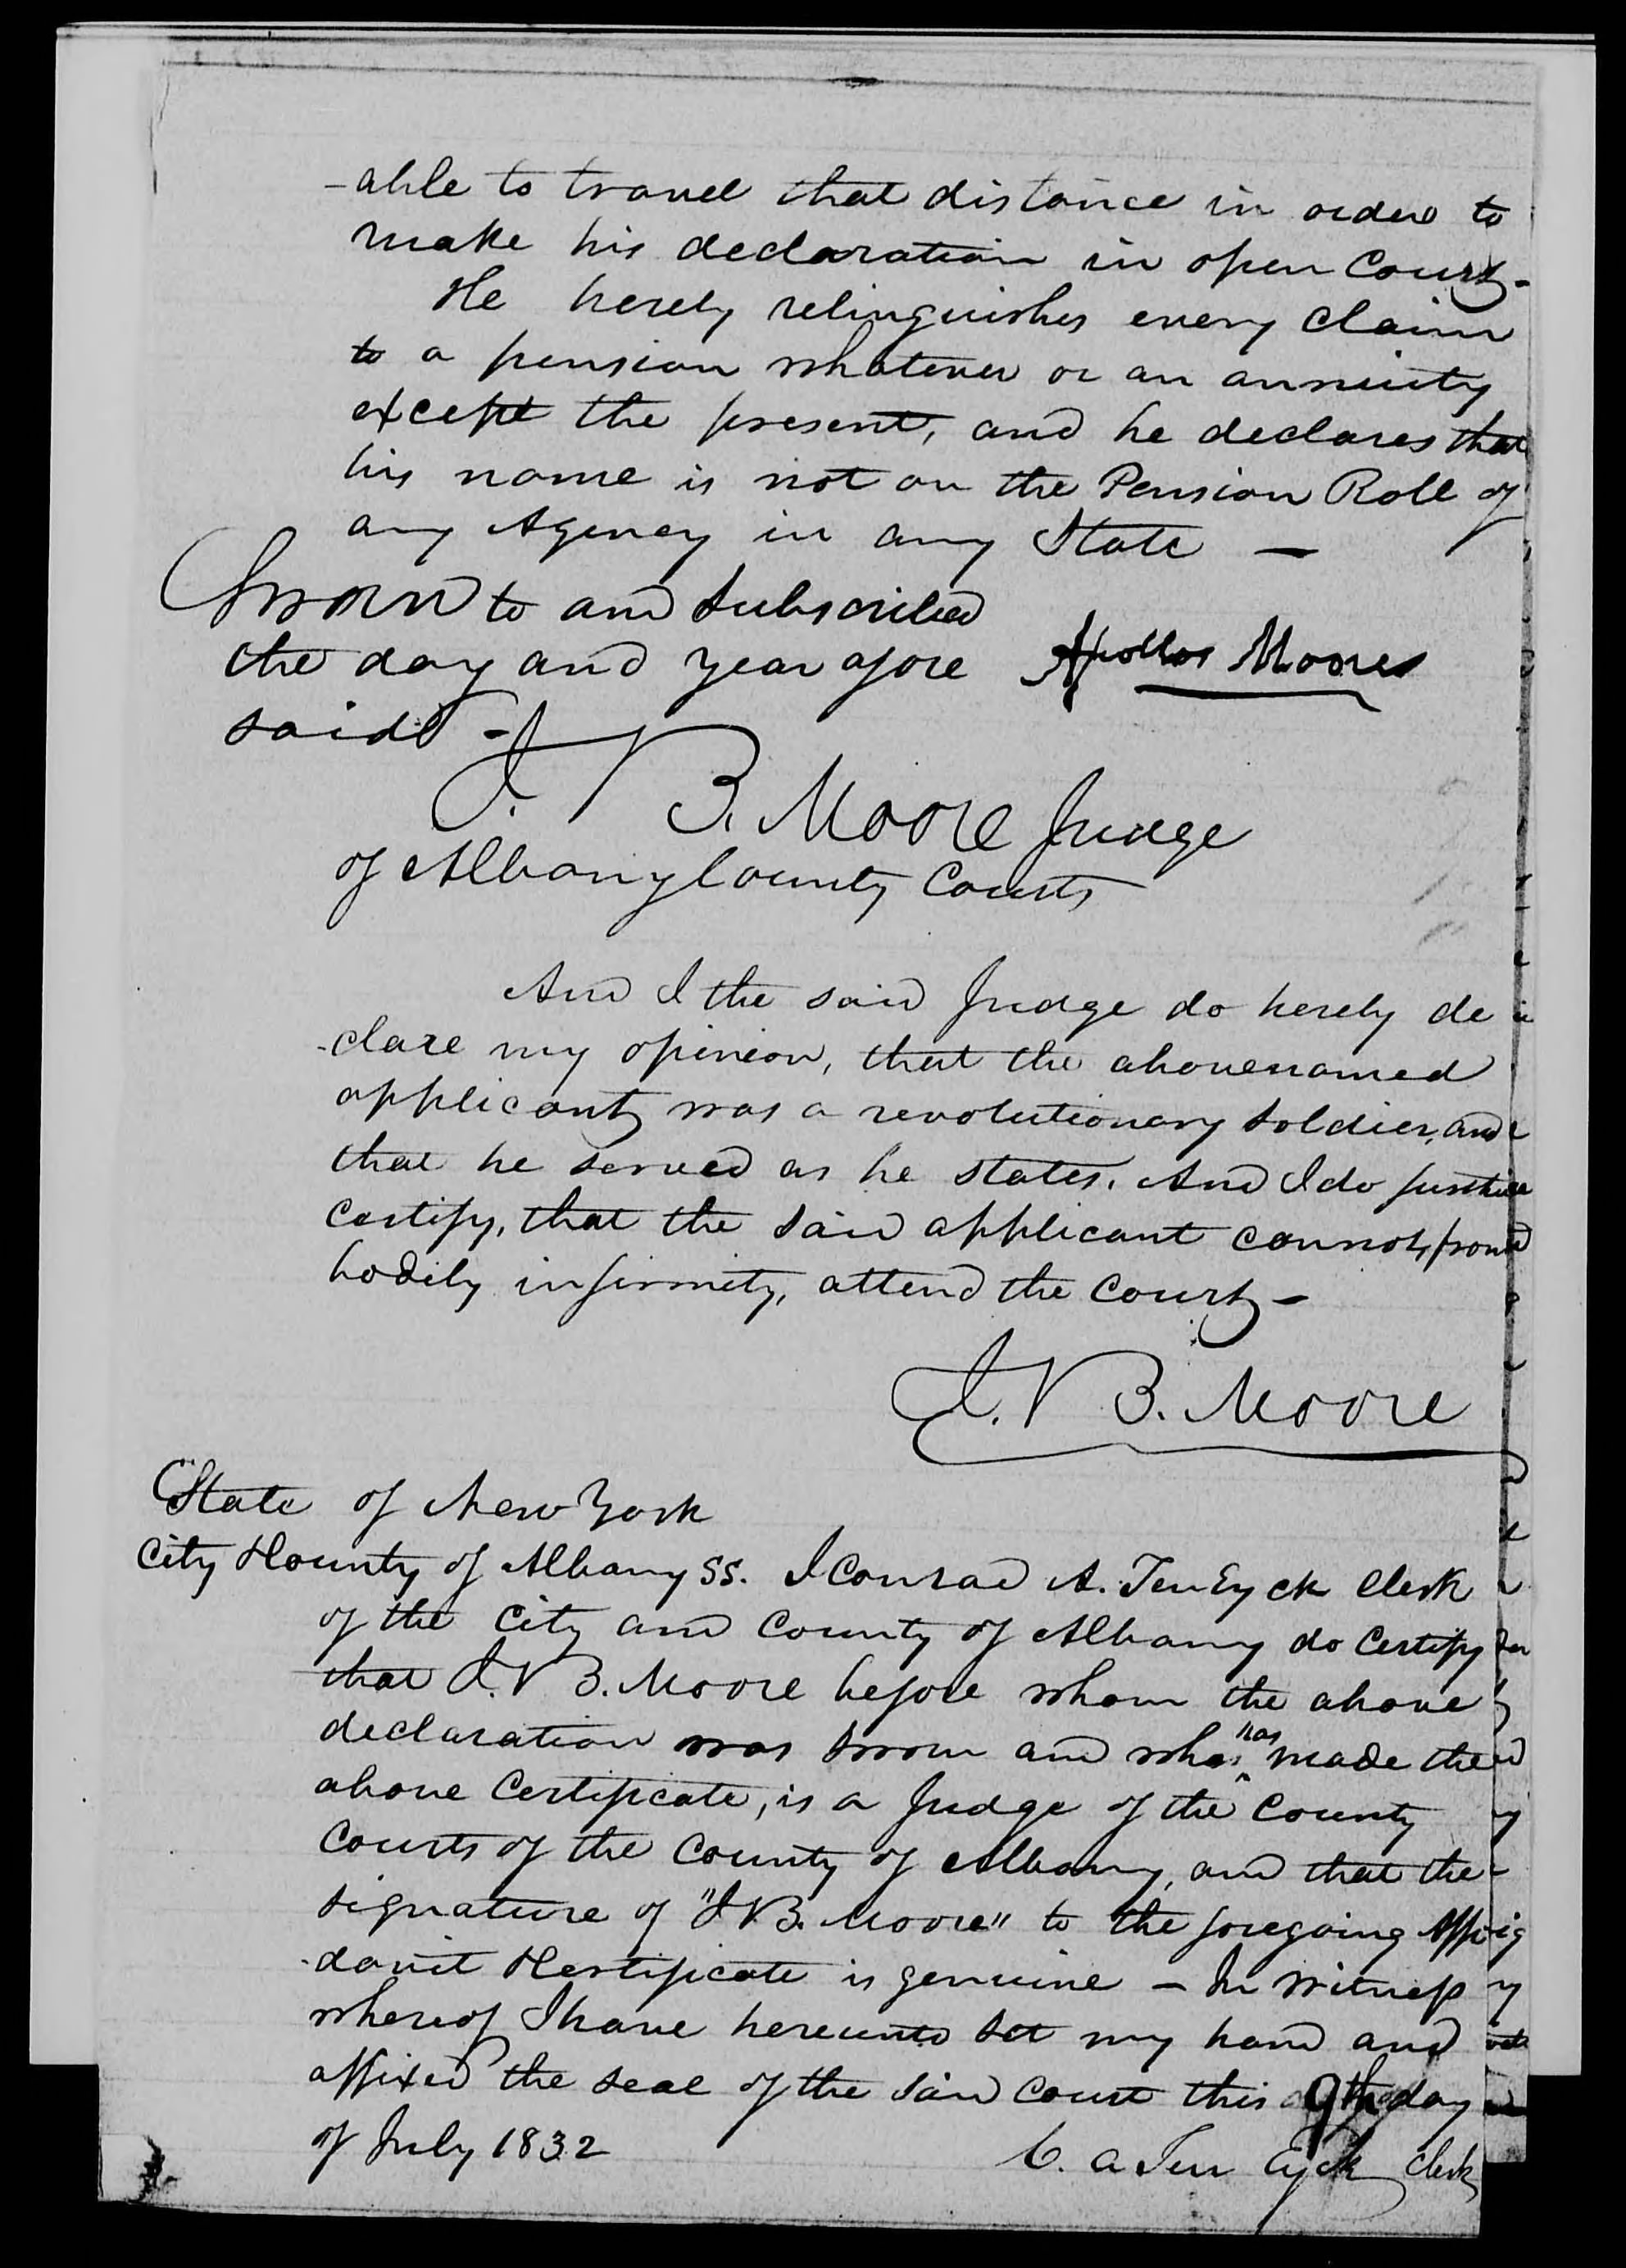 -able to travel that distance in order to
make his declaration in open Court-
He hereby relinquishes every claim
to a pension whatever or an annuity
except the present, and he declares that
his name is not on the Pension Roll of
any Agency in any State —
Sworn to and subscribed
the day and year afore
said - Apollos Moore
I. V B. Moore Judge
of Albany County Courts
And I the said Judge do hereby de
-clare my opinion, that the abovenamed
applicant was a revolutionary soldier, and
that he served as he states. And I do further
certify, that the said applicant cannot, from
bodily infirmity, attend the Court -
I. V B. Moore
State of New York
City & County of Albany ss. I Conrad A. Ten Eyck Clerk
of the City and County of Albany do Certify
that I. V B. Moore before whom the above
declaration was sworn and who has made the
above Certificate, is a Judge of the County
Courts of the County of Albany, and that the
signature of "I V B. Moore" to the foregoing Affi
-davit & Certificate is genuine - In Witness
whereof I have hereunto set my hand and
affixed the seal of the said Court this 9th day
of July 1832
C. A Ten Eyck Clerk